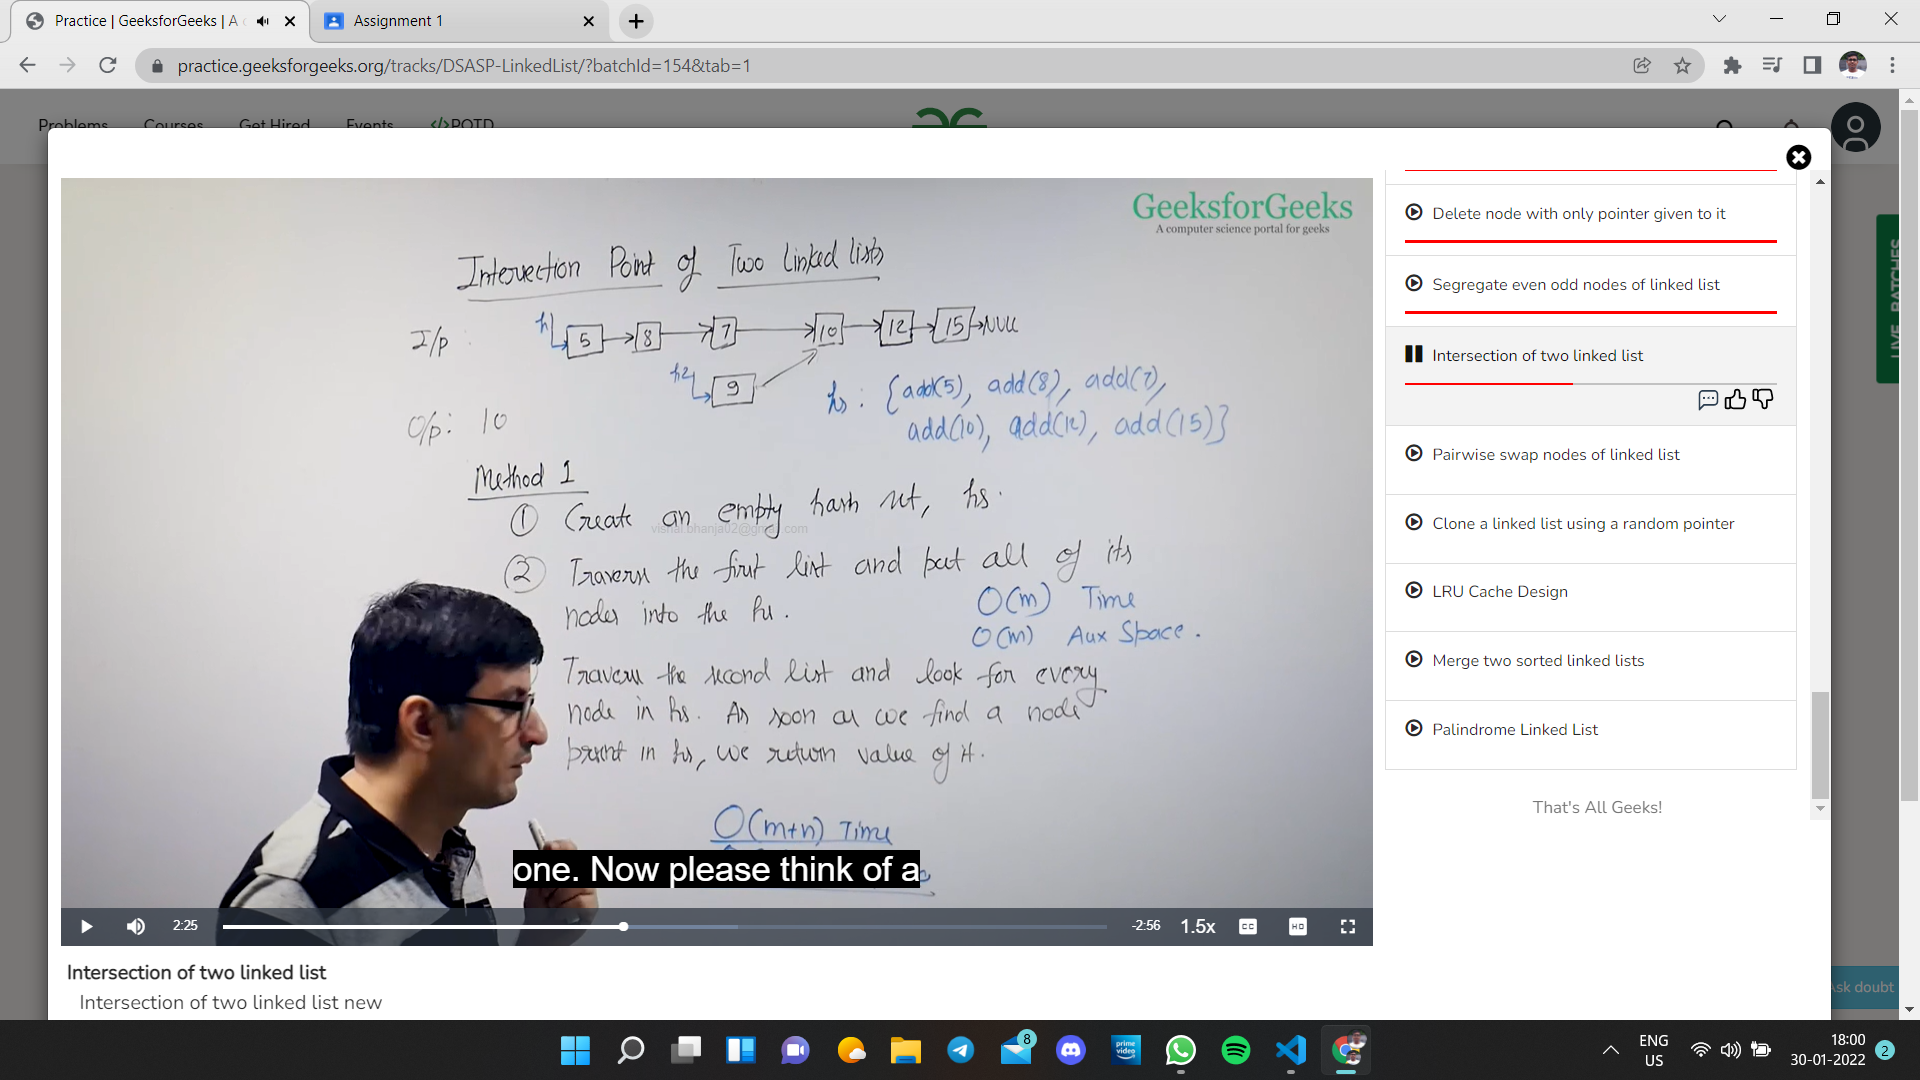 Practice | GeeksforGeeks | A
Assignment 1
practice.geeksforgeeks.org/tracks/DSASP-LinkedList/?batchId=154&tab=1
Problems Courses Get Hired Events </>POTD
GeeksforGeeks
A computer science portal for geeks
Intersection Point of Two linked lists
I/p :
h
5 8 7 10 12 15 NULL
h2
9
hs : {add(5), add(8), add(7),
add(10), add(12), add(15)}
O/p: 10
Method 1
① Create an empty hash set, hs.
vishal.bhanja02@gmail.com
② Traverse the first list and put all of its
nodes into the hs.
O(m) Time
O(m) Aux Space.
Traverse the second list and look for every
node in hs. As soon as we find a node
present in hs, we return value of it.
O(m+n) Time
one. Now please think of a
2:25
-2:56
1.5x
CC
HD
Intersection of two linked list
Intersection of two linked list new
Delete node with only pointer given to it
Segregate even odd nodes of linked list
Intersection of two linked list
Pairwise swap nodes of linked list
Clone a linked list using a random pointer
LRU Cache Design
Merge two sorted linked lists
Palindrome Linked List
That's All Geeks!
LIVE BATCHES
Ask doubt
8
prime video
ENG
US
18:00
30-01-2022
2